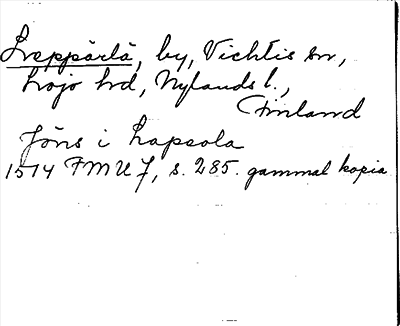 Leppärlä, by, Vichtis sn,
Lojo hd, Nylands l.,
Finland
Jöns i Lapsola
1514 FMU 7, s. 285. gammal kopia